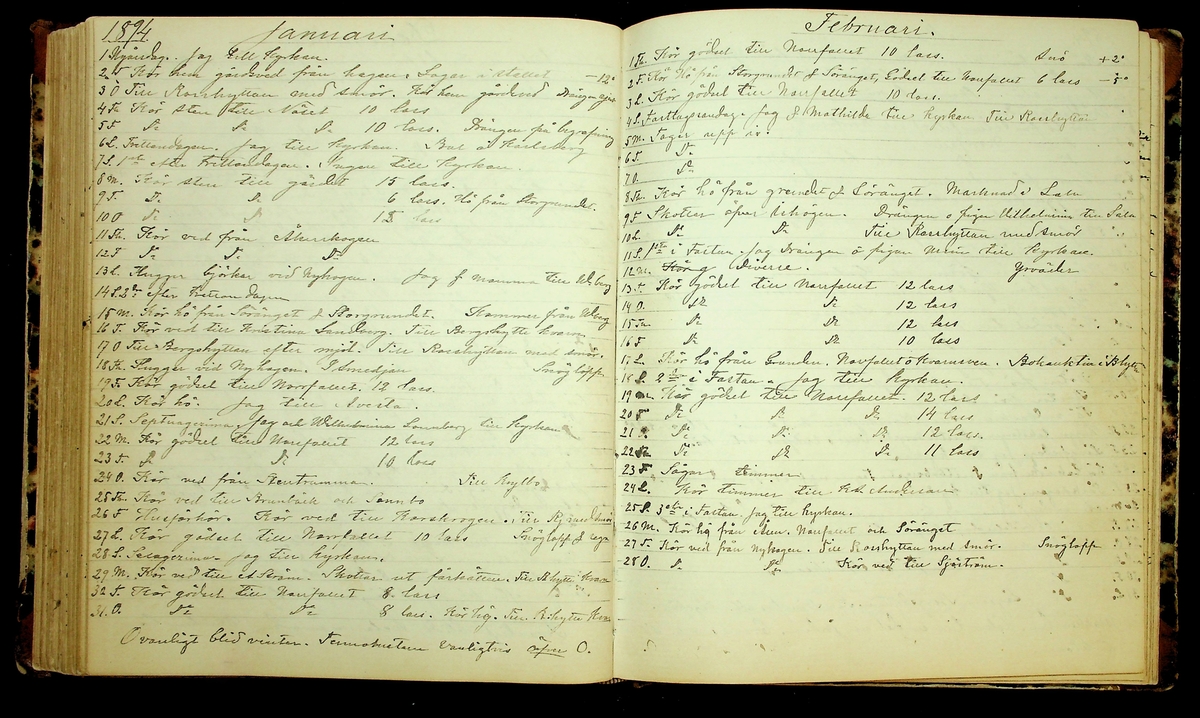 1894. Januari
1 Nyårsdag. Jag till Kyrkan.
2 T. Kör hem gårdsved från hagen. Sågar i stallet — 12°
3 O Till Rosshyttan med smör. Kör hem gårdsved Drängen
4 Th Kör sten till Näset 10 lass
5 F. Do Do Do 10 lass. Drängen på begrafning
6 L. Trettondagen. Jag till Kyrkan. Bal å Karlsberg
7 S. 1sta efter Trettondagen. Ingen till Kyrkan.
8 M. Kör sten till gärdet 15 lass.
9 T. Do Do 6 lass. Hö från Storgrundet.
10 O Do Do 15 lass
11 Th. Kör ved från Åkerskogen
12 F Do Do Do
13 L. Hugger björkar vid Nyhagen. Jag & mamma till
14 S. 2dra efter Trettondagen
15 M. Kör hö från Söränget & Storgrundet. Kommer från
16 T. Kör ved till Kristina Sandberg. Till Bergshytte kvarn
17 O Till Bergshyttan efter mjöl. Till Rosshyttan med smör.
18 Th. Hugger vid Nyhagen. Snöglopp
19 F. Kör gödsel till Norrfallet. 12 lass.
20 L. Kör hö. Jag till Avesta.
21 S. Septuagesima. Jag och Wilhelmina Lonnberg till Kyrkan
22 M. Kör gödsel till Norrfallet 12 lass
23 T. Do Do 10 lass
24 O. Kör ved från Stentrumman Till Krylbo
25 Th. Kör ved till Brunbäck och Sonnbo
26 F Husförhör. Kör ved till Korskrogen. Till R. med smör
27 L. Kör gödsel till Norrfallet 10 lass Snöglopp & regn
28 S. Sexagesima. Jag till Kyrkan.
29 M. Kör ved till A Ström. Skottar ut fårhötten. Till B.hytte Kvarn
30 T. Kör gödsel till Norrfallet 8 lass
31 O. Do Do 8 lass. Kör hö. Till B.hytte Kva
Ovanligt blid vinter. Termometern vanligtvis öfver 0.
Februari.
1 Th. Kör gödsel till Norrfallet 10 lass. Snö + 2°
2 F. Kör hö från Storgrundet & Söränget, Gödsel till Norrfallet 6 lass — 5°
3 L. Kör gödsel till Norrfallet 10 lass.
4 S. Fastlagssöndag. Jag & Mathilda till Kyrkan Till Rosshyttan
5 M. Tager upp is.
6 T. Do
7 O. Do
8 Th. Kör hö från grundet & Söränget. Marknad i Sala
9 F. Skottar öfver Drängen o pigan Wilhelmina till Sala
10 L. Do Do Till Rosshyttan med smör
11 S. 1sta i Fastan. Jag Drängen o pigan Mina till Kyrkan.
12 M. Diverse. Yrväder
13 T. Kör gödsel till Norrfallet 12 lass
14 O. Do Do 12 lass
15 Th Do Do 12 lass
16 F Do Do 10 lass
17 L. Kör hö från Grunden. Norfallet o Kvarnsven. Bokauktion i Bhytte
18 S. 2dra i Fastan. Jag till Kyrkan.
19 M. Kör gödsel till Norrfallet. 12 lass
20 T Do Do Do 14 lass
21 O. Do Do Do 12 lass.
22 Th Do Do Do 11 lass
23 F. Sågar timmer
24 L. Kör timmer till Anderson
25 S. 3dje i Fastan. Jag till Kyrkan.
26 M. Kör hö från Åen. Norfallet och Söränget
27 T. Kör ved från Nyhagen. Till Rosshyttan med smör. Snöglopp
28 O. Do Do Kör ved till Sjöström.